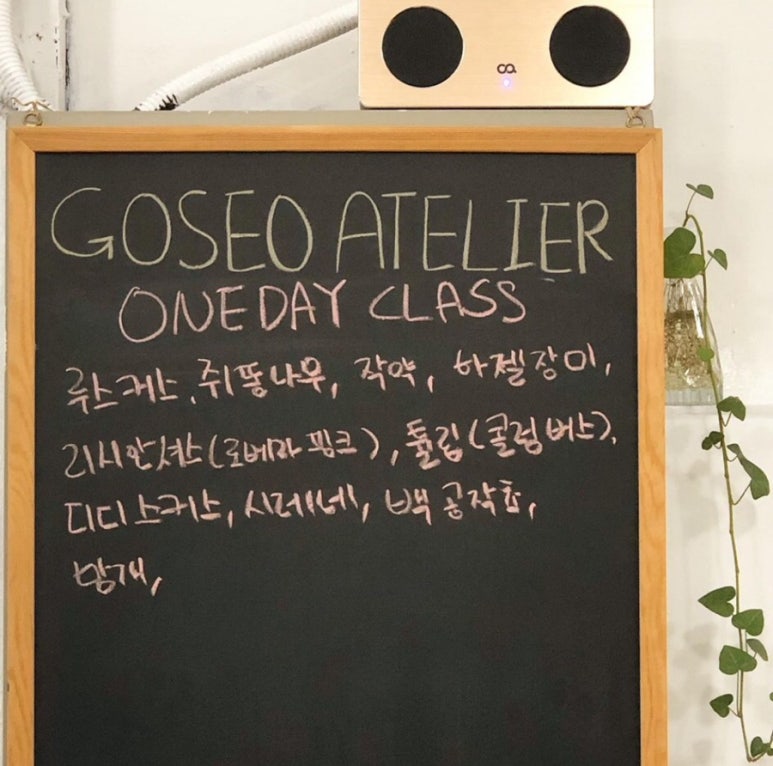 GOSEO ATELIER
ONEDAY CLASS
루스커스, 쥐똥나무, 작약, 하젤장미,
리시안셔스(로베라 핑크), 튤립(콜럼버스),
디디스커스, 시레네, 백공작초,
망개,